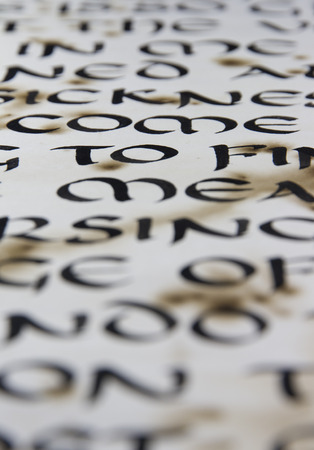 IN ME
NED A
SICKNES
COME
G TO FIN
MEA
RSINC
GE OF
NDO
ON T